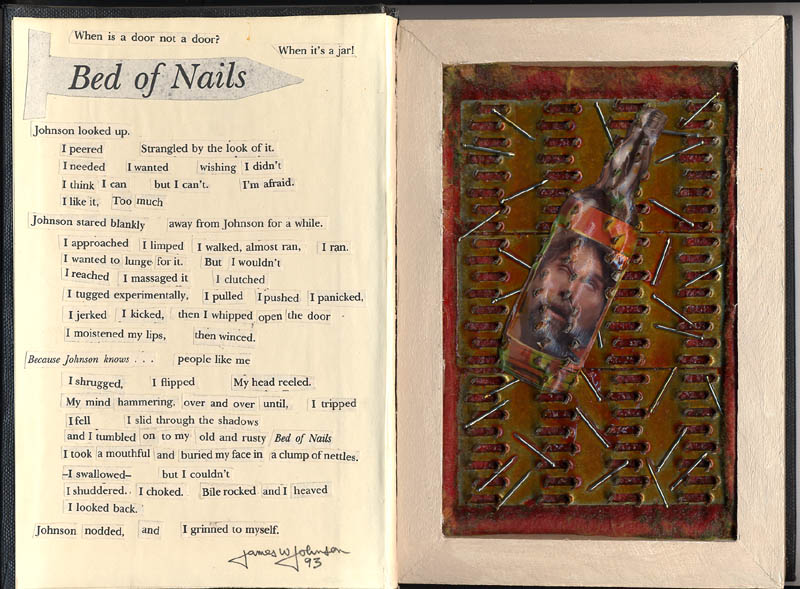 When is a door not a door?
When it's a jar!
Bed of Nails
Johnson looked up.
I peered Strangled by the look of it.
I needed I wanted wishing I didn't
I think I can but I can't. I'm afraid.
I like it, Too much
Johnson stared blankly away from Johnson for a while.
I approached I limped I walked, almost ran, I ran.
I wanted to lunge for it. But I wouldn't
I reached I massaged it I clutched
I tugged experimentally, I pulled I pushed I panicked,
I jerked I kicked, then I whipped open the door
I moistened my lips, then winced.
Because Johnson knows . . . people like me
I shrugged, I flipped My head reeled.
My mind hammering. over and over until, I tripped
I fell I slid through the shadows
and I tumbled on to my old and rusty Bed of Nails
I took a mouthful and buried my face in a clump of nettles.
–I swallowed– but I couldn't
I shuddered. I choked. Bile rocked and I heaved
I looked back.
Johnson nodded, and I grinned to myself.
James W Johnson
93